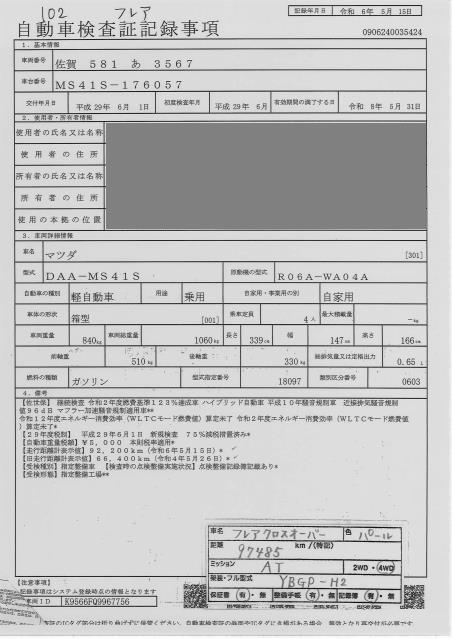 102 フレア
記録年月日 令和 6年 5月 15日
自動車検査証記録事項
0906240035424
1. 基本情報
車両番号 佐賀 581 あ 3567
車台番号 MS41S-176057
交付年月日 平成 29年 6月 1日 初度検査年月 平成 29年 6月 有効期間の満了する日 令和 8年 5月 31日
2. 使用者・所有者情報
使用者の氏名又は名称
使用者の住所
所有者の氏名又は名称
所有者の住所
使用の本拠の位置
3. 車両詳細情報
車名 マツダ [301]
型式 DAA-MS41S 原動機の型式 R06A-WA04A
自動車の種別 軽自動車 用途 乗用 自家用・事業用の別 自家用
車体の形状 箱型 [001] 乗車定員 4人 最大積載量 -kg
車両重量 840kg 車両総重量 1060kg 長さ 339cm 幅 147cm 高さ 166cm
前軸重 510kg 後軸重 330kg 総排気量又は定格出力 0.65L
燃料の種類 ガソリン 型式指定番号 18097 類別区分番号 0603
4. 備考
【佐世保】 継続検査 令和2年度燃費基準123%達成車 ハイブリッド自動車 平成10年騒音規制車 近接排気騒音規制
値96dB マフラー加速騒音規制適用車**
令和12年度エネルギー消費効率(WLTCモード燃費値)算定未了 令和2年度エネルギー消費効率(WLTCモード燃費値
)算定未了*
【29年度税制】 平成29年6月1日 新規検査 75%減税措置済み*
【自動車重量税額】¥5,000 本則税率適用*
【走行距離計表示値】92,200km(令和6年5月15日)*
【旧走行距離計表示値】66,400km(令和4年5月26日)*
【受検種別】指定整備車 【検査時の点検整備実施状況】点検整備記録簿記載あり*
【受検形態】指定整備工場**
車名 フレアクロスオーバー 色 パール
距離 97485 km/(特記)
ミッション AT 2WD・4WD
架装・フル型式 YBGP-H2
保証書 有・無 整備手帳 有・無 記録簿 有・無
【注意事項】
記録事項はシステム登録時点の情報となります
車両ID K9566FQ9967756